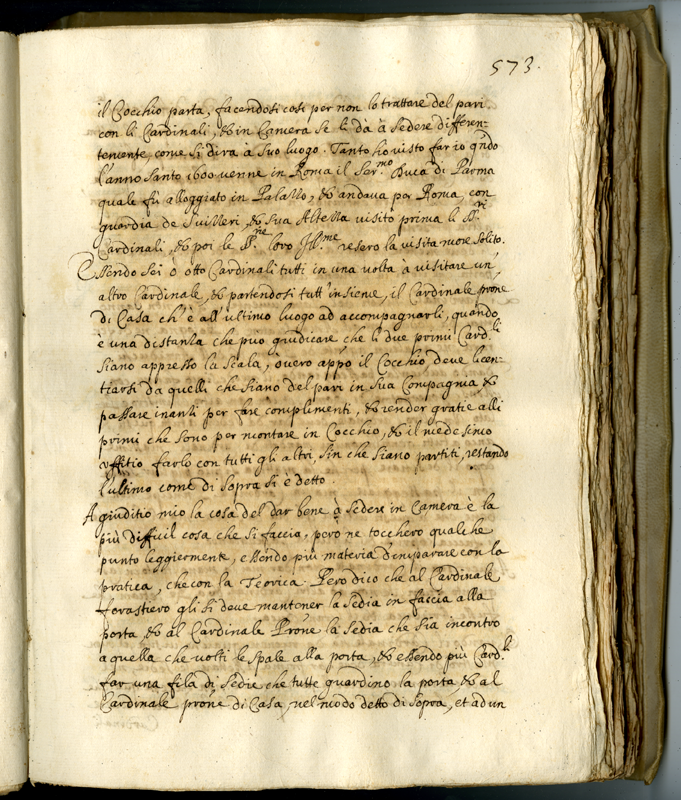 573.
il Cocchio parta, facendosi così per non lo trattare del pari
con li Cardinali, & in Camera se li dà à sedere differen-
temente, come si dirà à suo luogo. Tanto hò visto far io qñdo
l'anno santo 1600 venne in Roma il Ser.mo Duca di Parma
quale fù alloggiato in Palazzo, & andava per Roma con
guardia de Suizzeri, & sua Altezza visitò prima li SS.ri
Cardinali, & poi le S.rie loro Ill.me resero la visita more solito.
Essendo sei o otto Cardinali tutti in una volta à visitare un'
altro Cardinale, & partendosi tutt'insieme, il Cardinale prone
di Casa ch'è all'ultimo luogo ad accompagnarli, quando
è una distanza che può giudicare che li due primi Card.li
siano appresso la scala, overo appò il Cocchio deve licen-
tiarsi da quelli che siano del pari in sua Compagnia, &
passare inanti per fare complimenti, & render gratie alli
primi che sono per montare in Cocchio, & il medesimo
offitio farlo con tutti gli altri, sin che siano partiti, restando
l'ultimo come di sopra si è detto
A giuditio mio la cosa del dar bene à sedere in Camera è la
più difficil cosa che si faccia, però ne toccherò qualche
punto leggiermente, essendo più materia d'imparare con la
pratica, che con la Teorica. Però dico che al Cardinale
forastiero gli si deve mantener la sedia in faccia alla
porta, & al Cardinale Prone la sedia che sia incontro
a quella che volti le spale alla porta, & essendo più Card.li
far una fila di sedie che tutte guardino la porta, & al
Cardinale prone di Casa, nel modo detto di sopra, et ad un